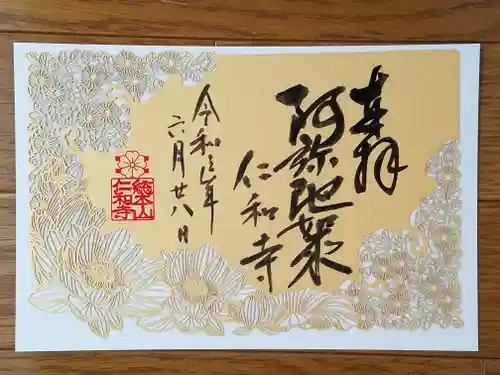 奉拝
阿弥陀如来
仁和寺
令和三年
六月廿八日
総本山
仁和寺